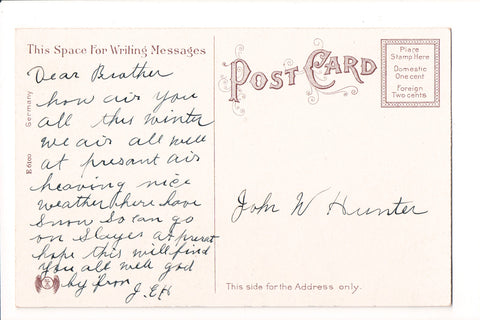 This Space For Writing Messages
Dear Brother
how air you
all this winter
we air all well
at presant air
heaving nice
weather here have
Snow So can go
on Slayes at presat
hope this will find
you all well god
by from
J. E H
Germany
E 6100
POST CARD
Place
Stamp Here
Domestic
One cent
Foreign
Two cents
John W Hunter
This side for the Address only.